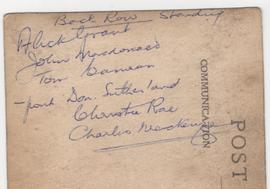 Back Row Standing
Alick Grant
John Macdonald
Tom Bannan
- Don. Sutherland
Christie Rae
Charles MacKenzie
COMMUNICATION
POST